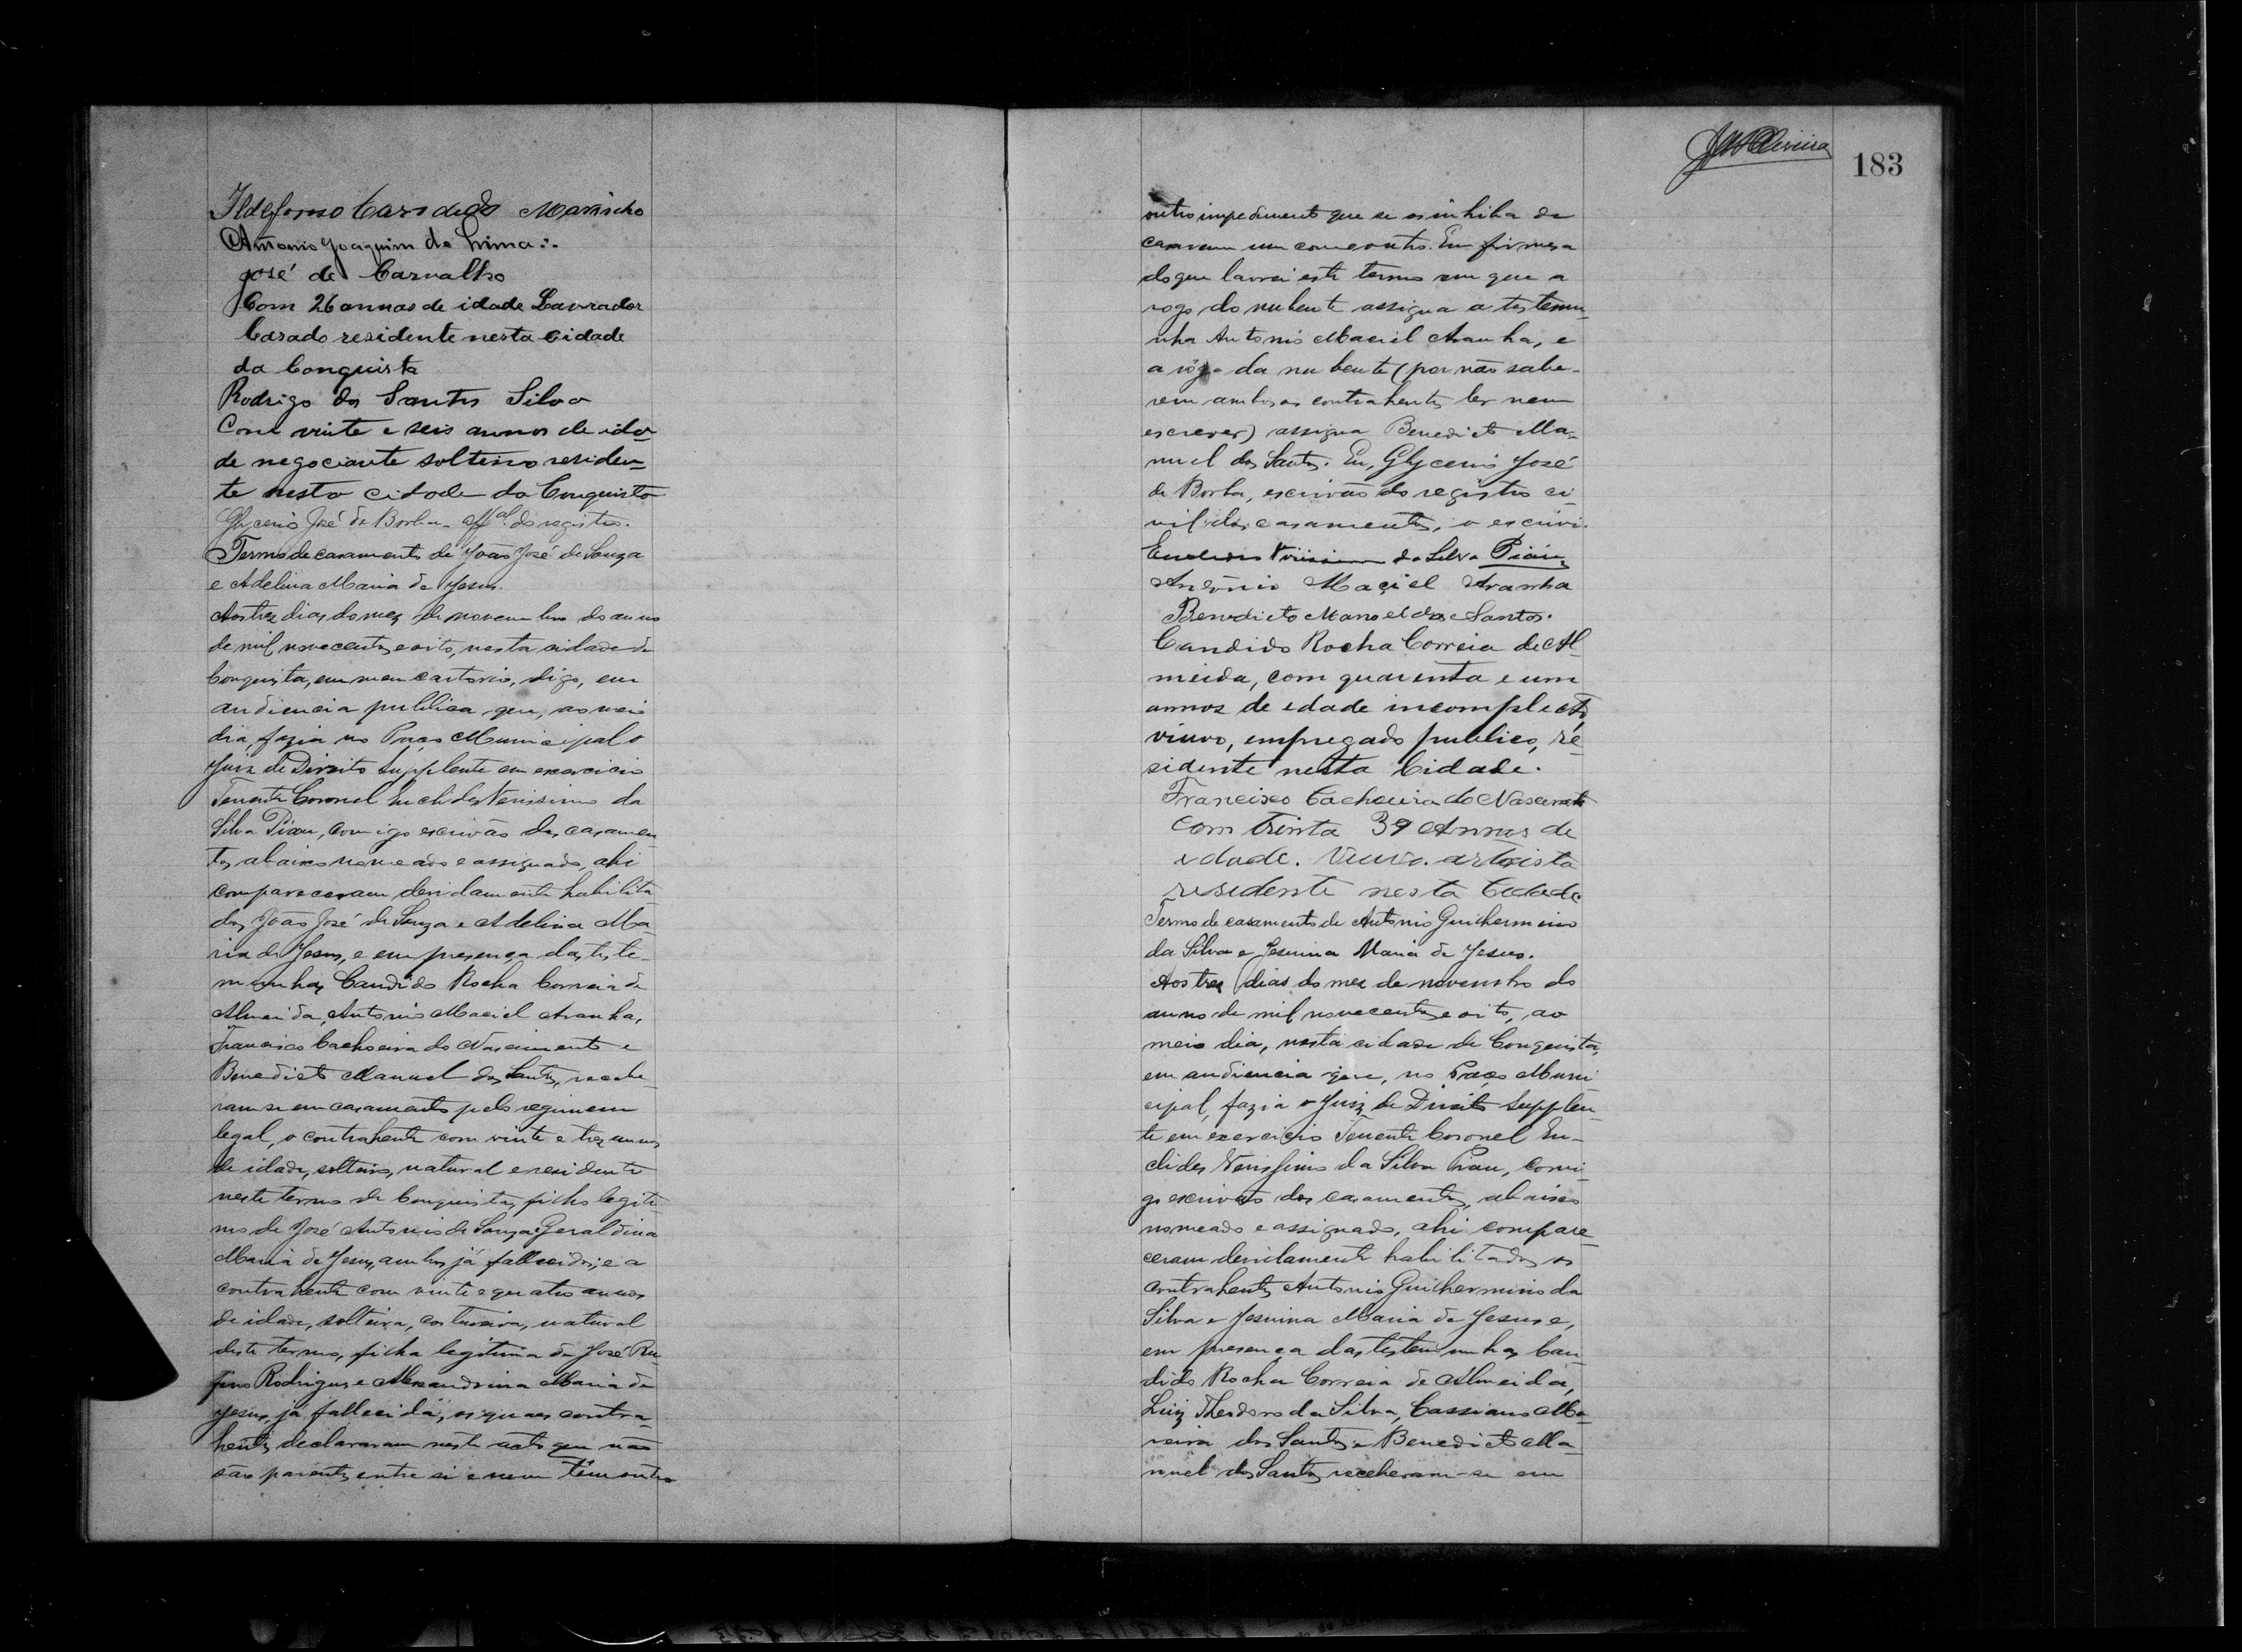 Ildefonso Cardoso Marinho
Antonio Joaquim de Lima
José de Carvalho
Com 26 annos de idade Lavrador
Casado residente nesta cidade
da Conquista
Rodrigo dos Santos Silva
Com vinte e seis annos de ida-
de negociante solteiro residen-
te nesta cidade da Conquista
Glycerio José de Borba - offal. do registro.
Termo de casamento de João José de Souza
e Adelina Maria de Jesus.
Aos trez dias do mez de novembro do anno
de mil novecentos e oito, nesta cidade de
Conquista, em meu cartorio, digo, em
audiencia publica que, ao meio
dia, fazia no Paço Municipal o
Juiz de Direito Supplente em exercicio
Tenente Coronel Euclides Verissimo da
Silva Piau, comigo escrivão dos casamen
tos abaixo nomeado e assignado, ahi
compareceram devidamente habilita
dos João José de Souza e Adelina Ma-
ria de Jesus, e em presença das teste-
munhas Candido Rocha Correia de
Almeida, Antonio Maciel Aranha,
Francisco Cachoeira do Nascimento e
Benedicto Manuel dos Santos, recebe
ram-se em casamento pelo regimem
legal, o contrahente com vinte e trez annos
de idade, solteiro, natural e residente
neste termo de Conquista, filho legiti
mo de José Antonio de Souza Geraldina
Maria de Jesus, ambos já fallecidos; e a
contrahente com vinte e quatro annos
de idade, solteira, costureira, natural
deste termo, filha legitima de José Ru-
fino Rodrigues e Alexandrina Maria de
Jesus, já fallecida, os quaes contra-
hentes declararam neste acto que não
são parentes entre si e nem têm outro
J Oliveira
183
outro impedimento que se os inhiba de
casarem um com o outro. Em firmesa
do que lavrei este termo em que a
rogo do nubente assigna a testemu-
nha Antonio Maciel Aranha, e
a rogo da nubente (por não sabe-
rem ambos os contrahentes ler nem
escrever) assigna Benedicto Ma-
nuel dos Santos. Eu, Glycerio José
de Borba, escrivão do registro ci
vil dos casamentos, o escrivi.
Euclides Verissimo da Silva Piau
Antônio Maçiel Aranha
Benedicto Manoel dos Santos.
Candido Rocha Correia de Al-
meida, com quarenta e um
annos de edade incompletos,
viuvo, empregado publico, re-
sidente nesta Cidade.
Francisco Cachoeira do Nascimento
com trinta 39 Annos de
edade. Viuvo. artista
residente nesta Cidade
Termo de casamento de Antonio Guilhermino
da Silva e Jesuina Maria de Jesus.
Aos trez dias do mez de novembro do
anno de mil novecentos e oito, ao
meio dia, nesta cidade de Conquista,
em audiencia que, no Paço Muni
cipal, fazia o Juiz de Direito Supplen-
te em exercicio Tenente Coronel Eu-
clides Verissimo da Silva Piau, comi-
go escrivão dos casamentos, abaixo
nomeado e assignado, ahi compare-
ceram devidamente habilitados os
contrahentes Antonio Guilhermino da
Silva e Jesuina Maria de Jesus e,
em presença das testemunhas Can-
dido Rocha Correia de Almeida,
Luiz Theodoro da Silva, Cassiano Mo-
reira dos Santos e Benedicto Ma-
nuel dos Santos receberam-se em